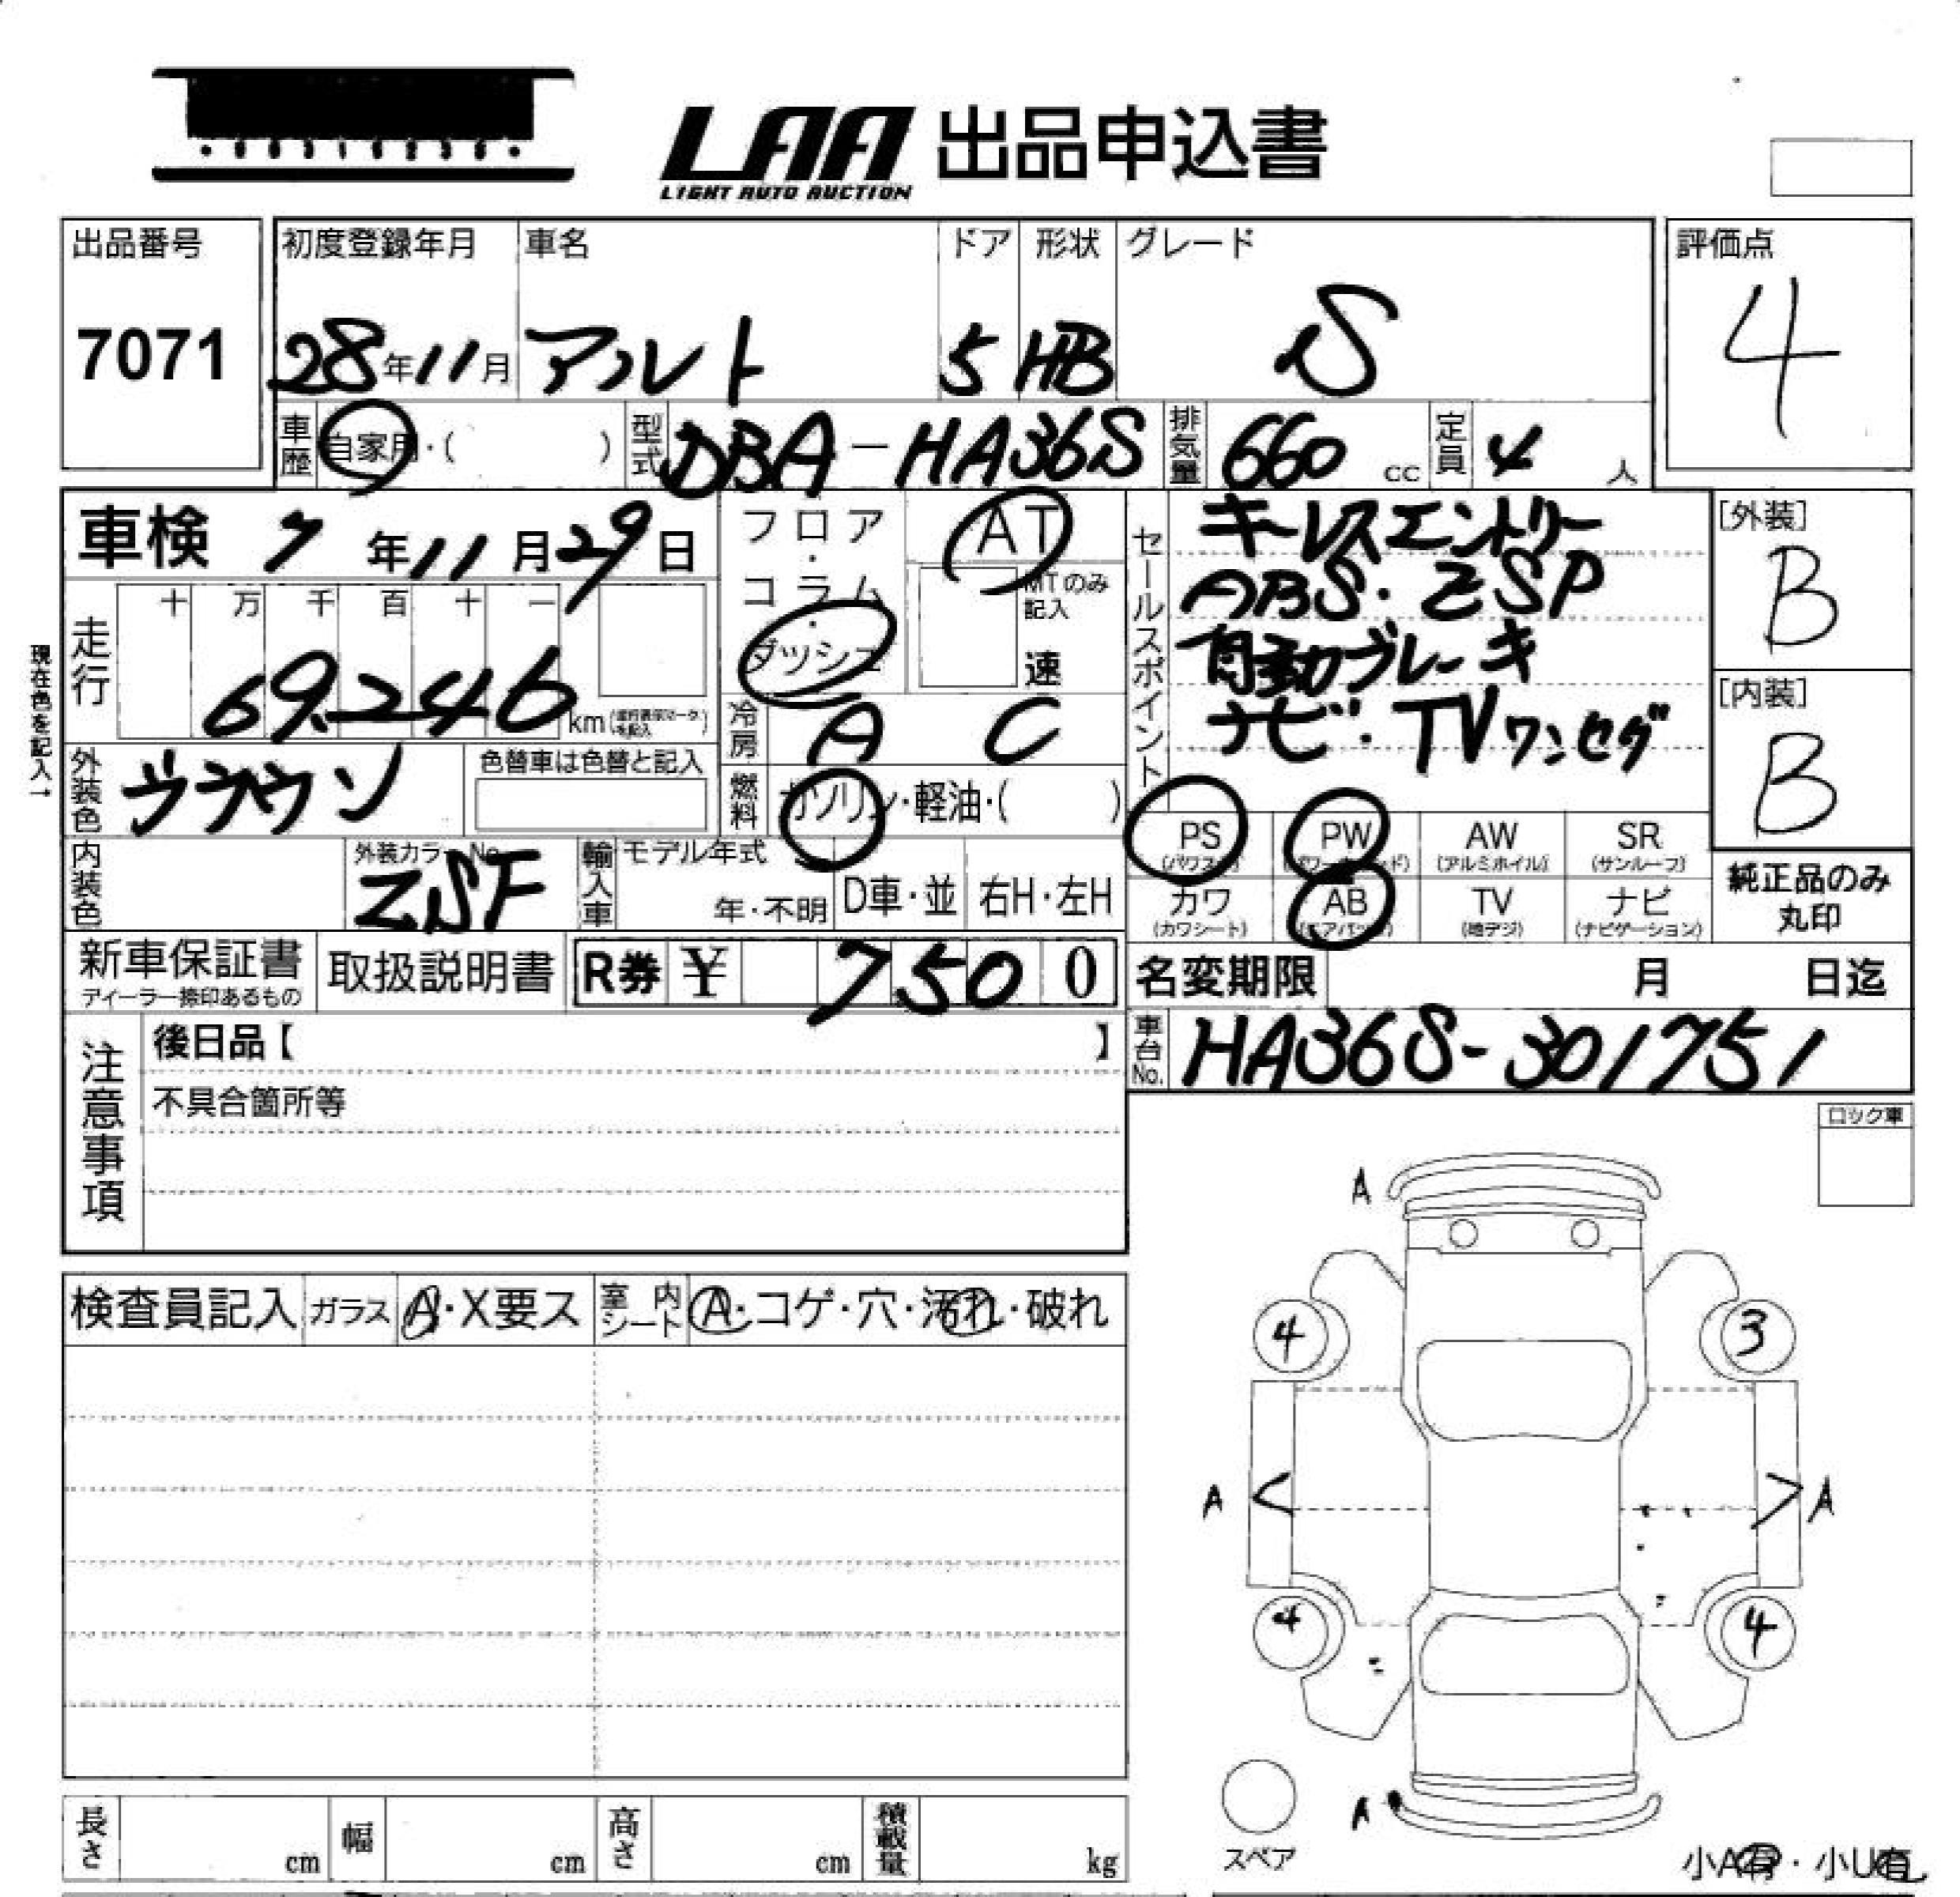 LAA 出品申込書
LIGHT AUTO AUCTION
出品番号
7071
初度登録年月 車名 ドア 形状 グレード
28年11月 アルト 5 HB S
評価点
4
車歴 自家用・( ) 型式 DBA-HA36S 排気量 660 cc 定員 4 人
車検 7年11月29日
フロア・コラム・ダッシュ
AT
MTのみ記入
速
セールスポイント
キーレスエントリー
ABS・ESP
自動ブレーキ
ナビ・TVワンセグ
[外装]
B
[内装]
B
現在色を記入→
走行 十 万 千 百 十 一
69,246 km
冷房 A C
外装色 ブラウン 色替車は色替と記入
燃料 ガソリン・軽油・( )
PS PW AW SR
(アルミホイル) (サンルーフ)
カワ AB TV ナビ
(カワシート) (エアバッグ) (地デジ) (ナビゲーション)
純正品のみ
丸印
内装色 外装カラーNo. ZSF 輸入車 モデル年式 年・不明 D車・並 右H・左H
新車保証書 取扱説明書 R券 ¥ 7500
ディーラー捺印あるもの
名変期限 月 日迄
車台No. HA36S-301751
注意事項
後日品【 】
不具合箇所等
ロック車
検査員記入 ガラス A・X要ス 室内シート A・コゲ・穴・汚れ・破れ
A
4 3
A < > A
4 4
A
スペア
小A有・小U有
長さ cm 幅 cm 高さ cm 積載量 kg